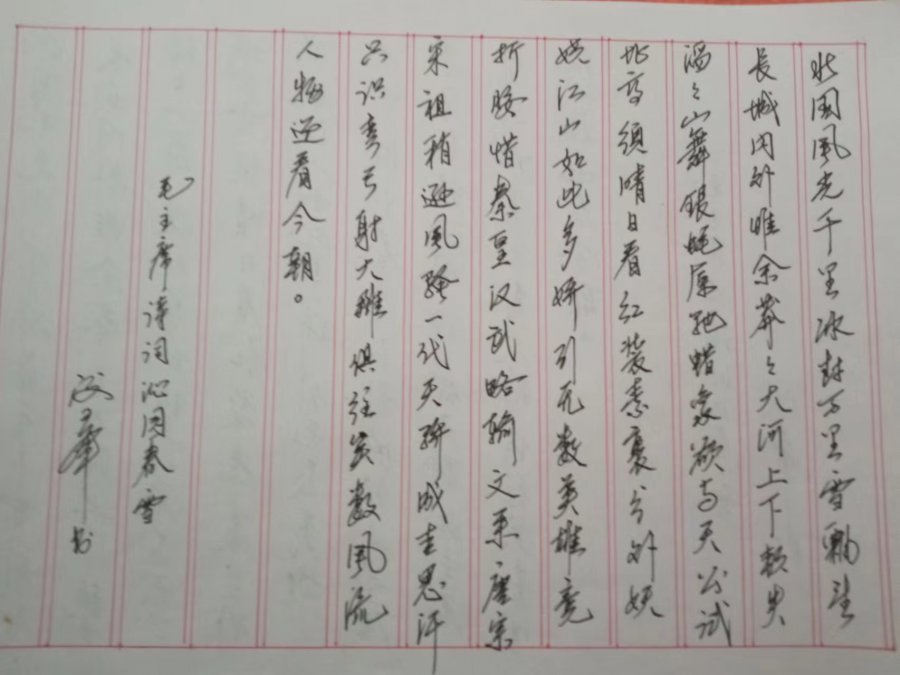 北国風光千里冰封万里雪飘望
長城内外惟余莽々大河上下頓失
滔々山舞银蛇原驰蜡象欲与天公试
比高须晴日看红装素裹分外妖
娆江山如此多娇引无数英雄竞
折腰惜秦皇汉武略输文采唐宗
宋祖稍逊風骚一代天骄成吉思汗
只识弯弓射大雕俱往矣数風流
人物还看今朝。
毛主席诗词沁园春雪
书